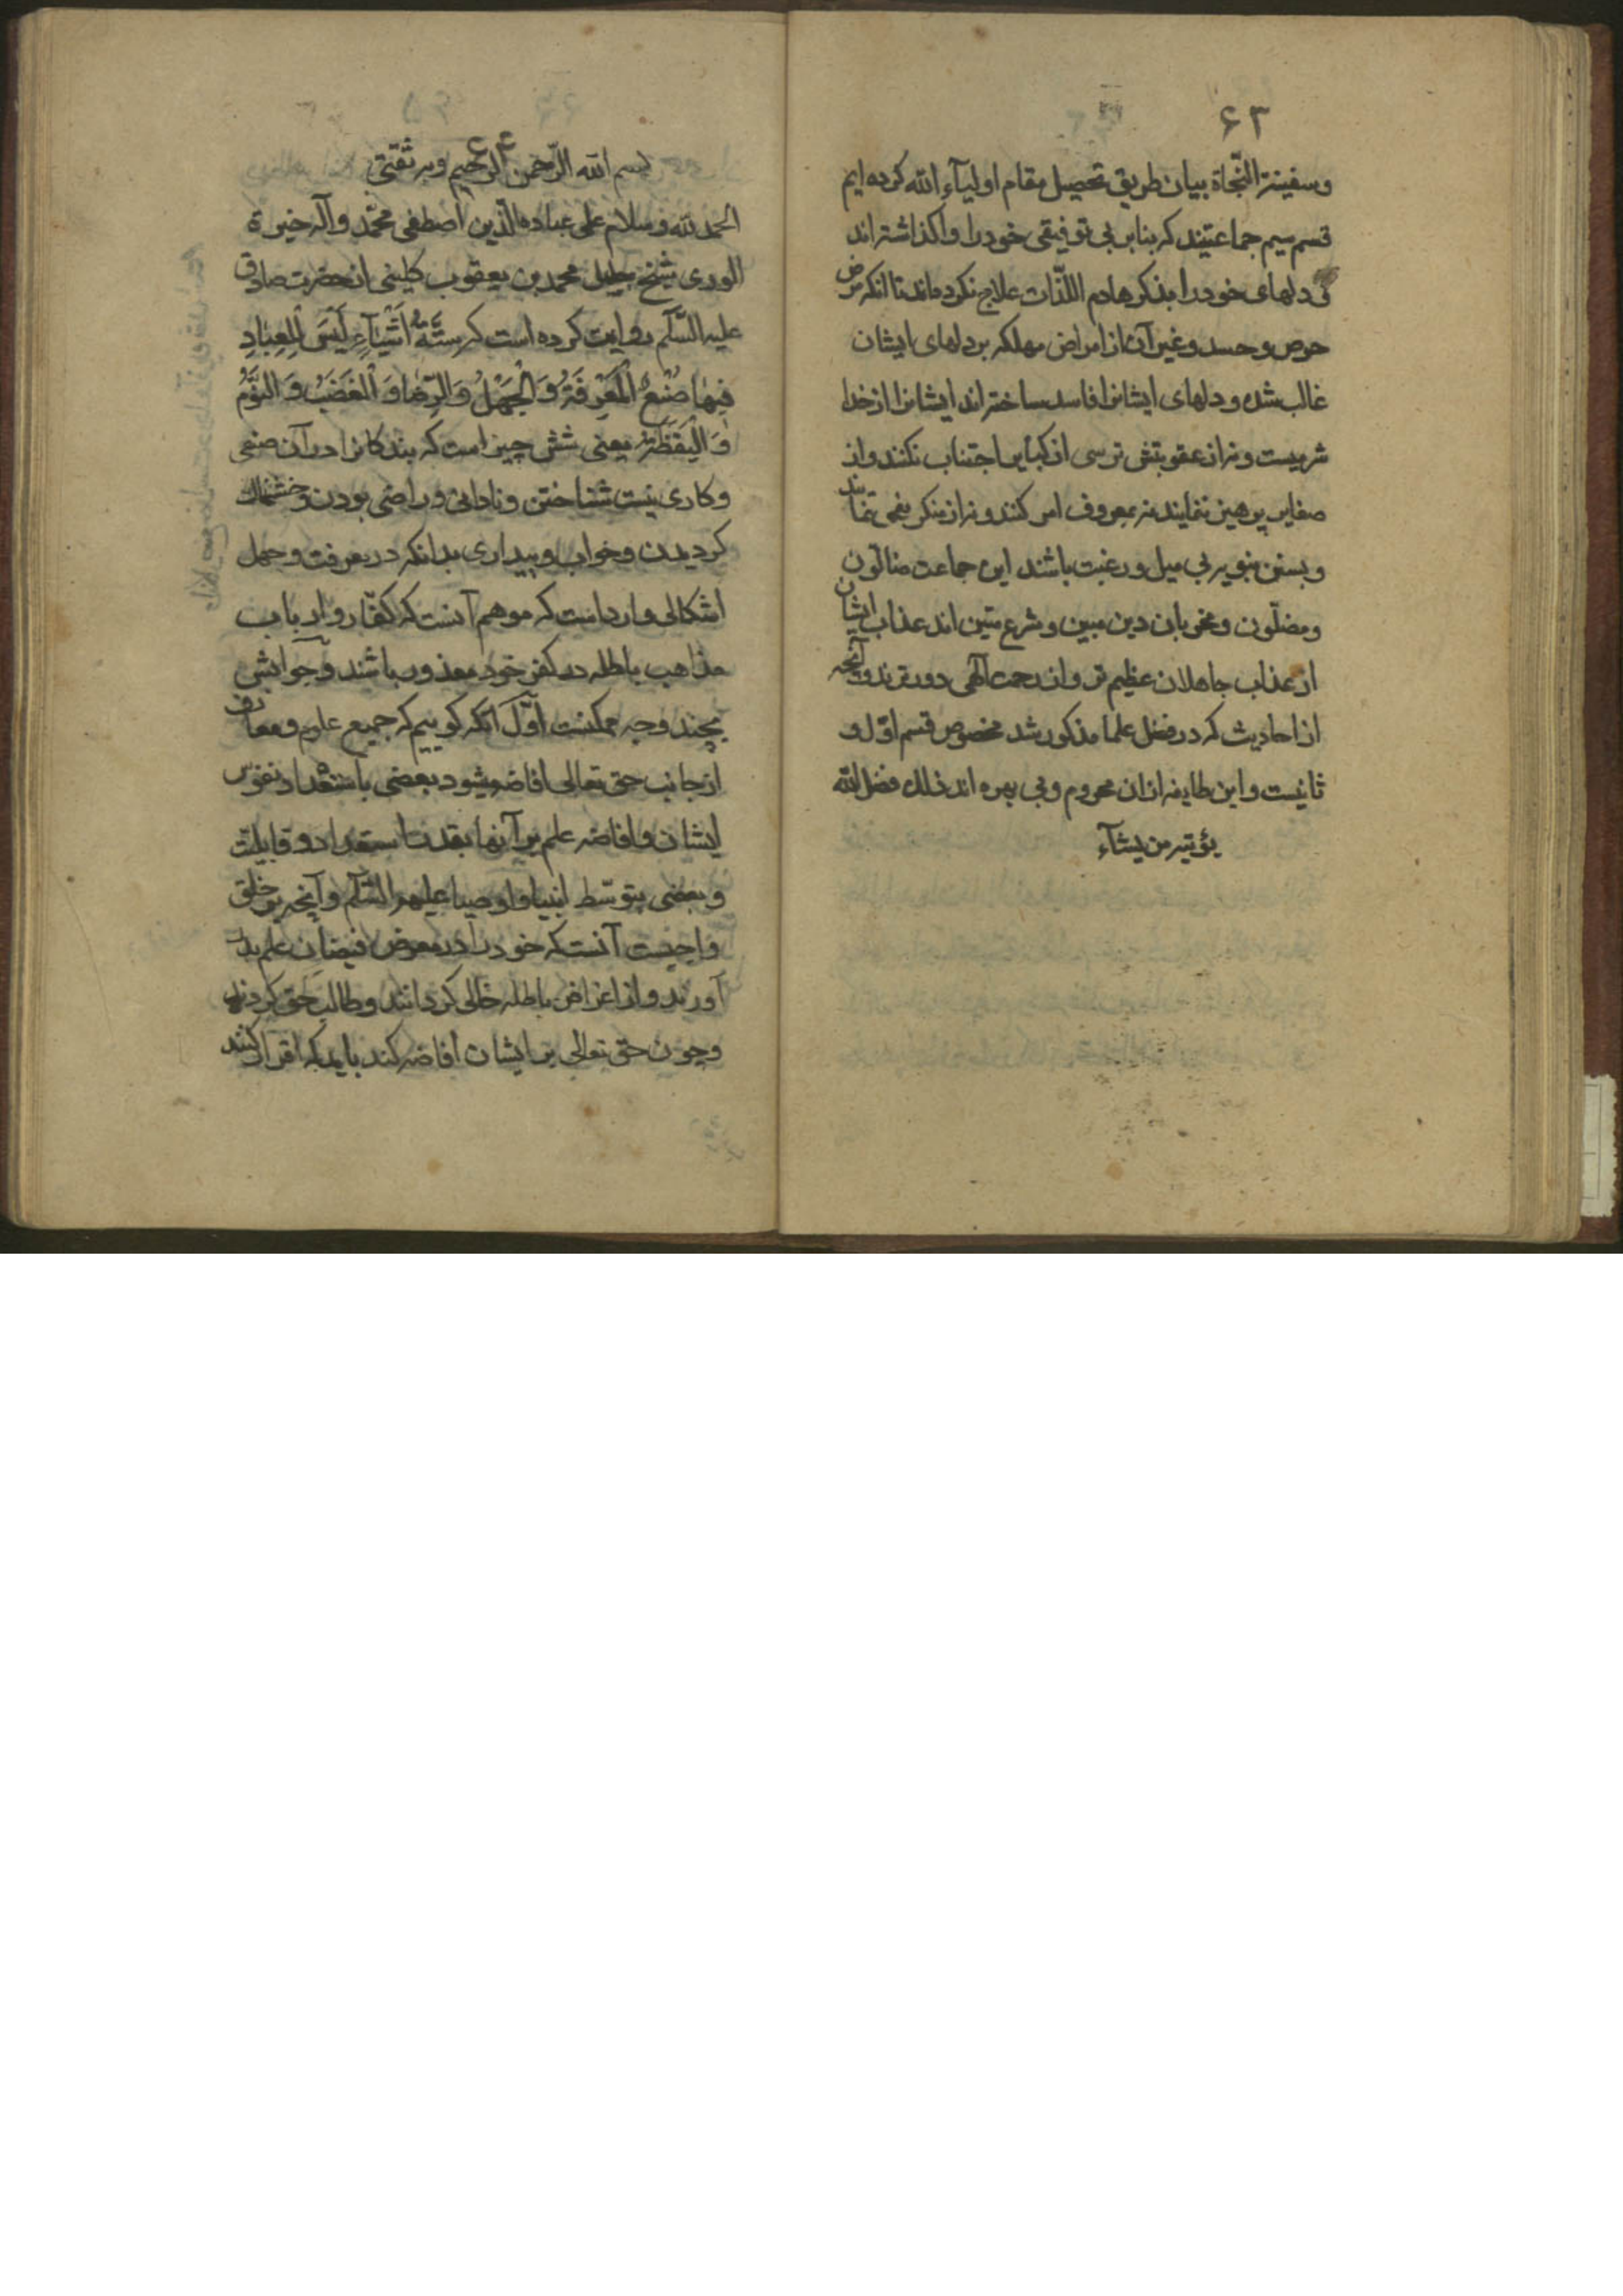 ۶۲
وسفینة النّجاة بیان طریق تحصیل مقام اولیآء الله کرده ایم
قسم سیم جماعتیند که بنابر بی توفیقی خود را واکذاشته اند
دلهای خود را بذکر هادم اللّذات علاج نکرده اند تا انکه مرض
حرص و حسد و غیر آن از امراض مهلکه بر دلهای ایشان
غالب شده و دلهای ایشانرا فاسد ساخته اند ایشانرا از خدا
شرمیست و نه از عقوبتش ترسی از کبایر اجتناب نکنند و از
صغایر پرهیز ننمایند نه بمعروف امر کنند و نه از منکر نهی نمایند
و بسنن نبویه بی میل و رغبت باشند این جماعت ضالّون
و مضلّون و مخربان دین مبین و شرع متین اند عذاب ایشان
از عذاب جاهلان عظیم تر و از رحمت آلهی دورترند و آنچه
از احادیث که در فضل علما مذکور شد مخصوص قسم اوّل و
ثانیست و این طایفه ازان محروم و بی بهره اند ذلك فضل الله
یؤتیه من یشآء
بسم الله الرّحمن الرّحیم وبه ثقتی
الحمد لله و سلام علی عباده الّذین اصطفی محمّد و آله خیرة
الوری شیخ جلیل محمد بن یعقوب کلینی از حضرت صادق
علیه السّلم روایت کرده است که سِتَّةُ اَشْیَآءِ لَیْسَ لِلْعِبَادِ
فِیْهَا صُنْعٌ اَلْمَعْرِفَةُ وَ الْجَهْلُ وَ الرِّضَا وَ الْغَضَبُ وَ النَّوْمُ
وَ الْیَقَظَةُ یعنی شش چیز است که بندکانرا در آن صنعی
و کاری نیست شناختن و نادانی و راضی بودن و خشمناك
کردیدن و خواب و بیداری بدانکه در معرفت و جهل
اشکالی وارد است که موهم آنست که کفّار و ارباب
مذاهب باطله در کفر خود معذور باشند و جوابش
بچند وجه ممکنست اوّل آنکه کوییم که جمیع علوم و معارف
از جانب حق تعالی افاضه میشود بعضی باستعداد نفوس
ایشان و افاضه علم بر آنها بقدر استعداد و قابلیت
و بعضی بتوسّط انبیا و اوصیا علیهم السّلم و آنچه بر خلق
واجبست آنست که خود را در معرض فیضان علم بدر
آورند و از اغراض باطله خالی کردانند و طالب حق کردند
و چون حق تعالی بر ایشان افاضه کند باید که اقرار کنند